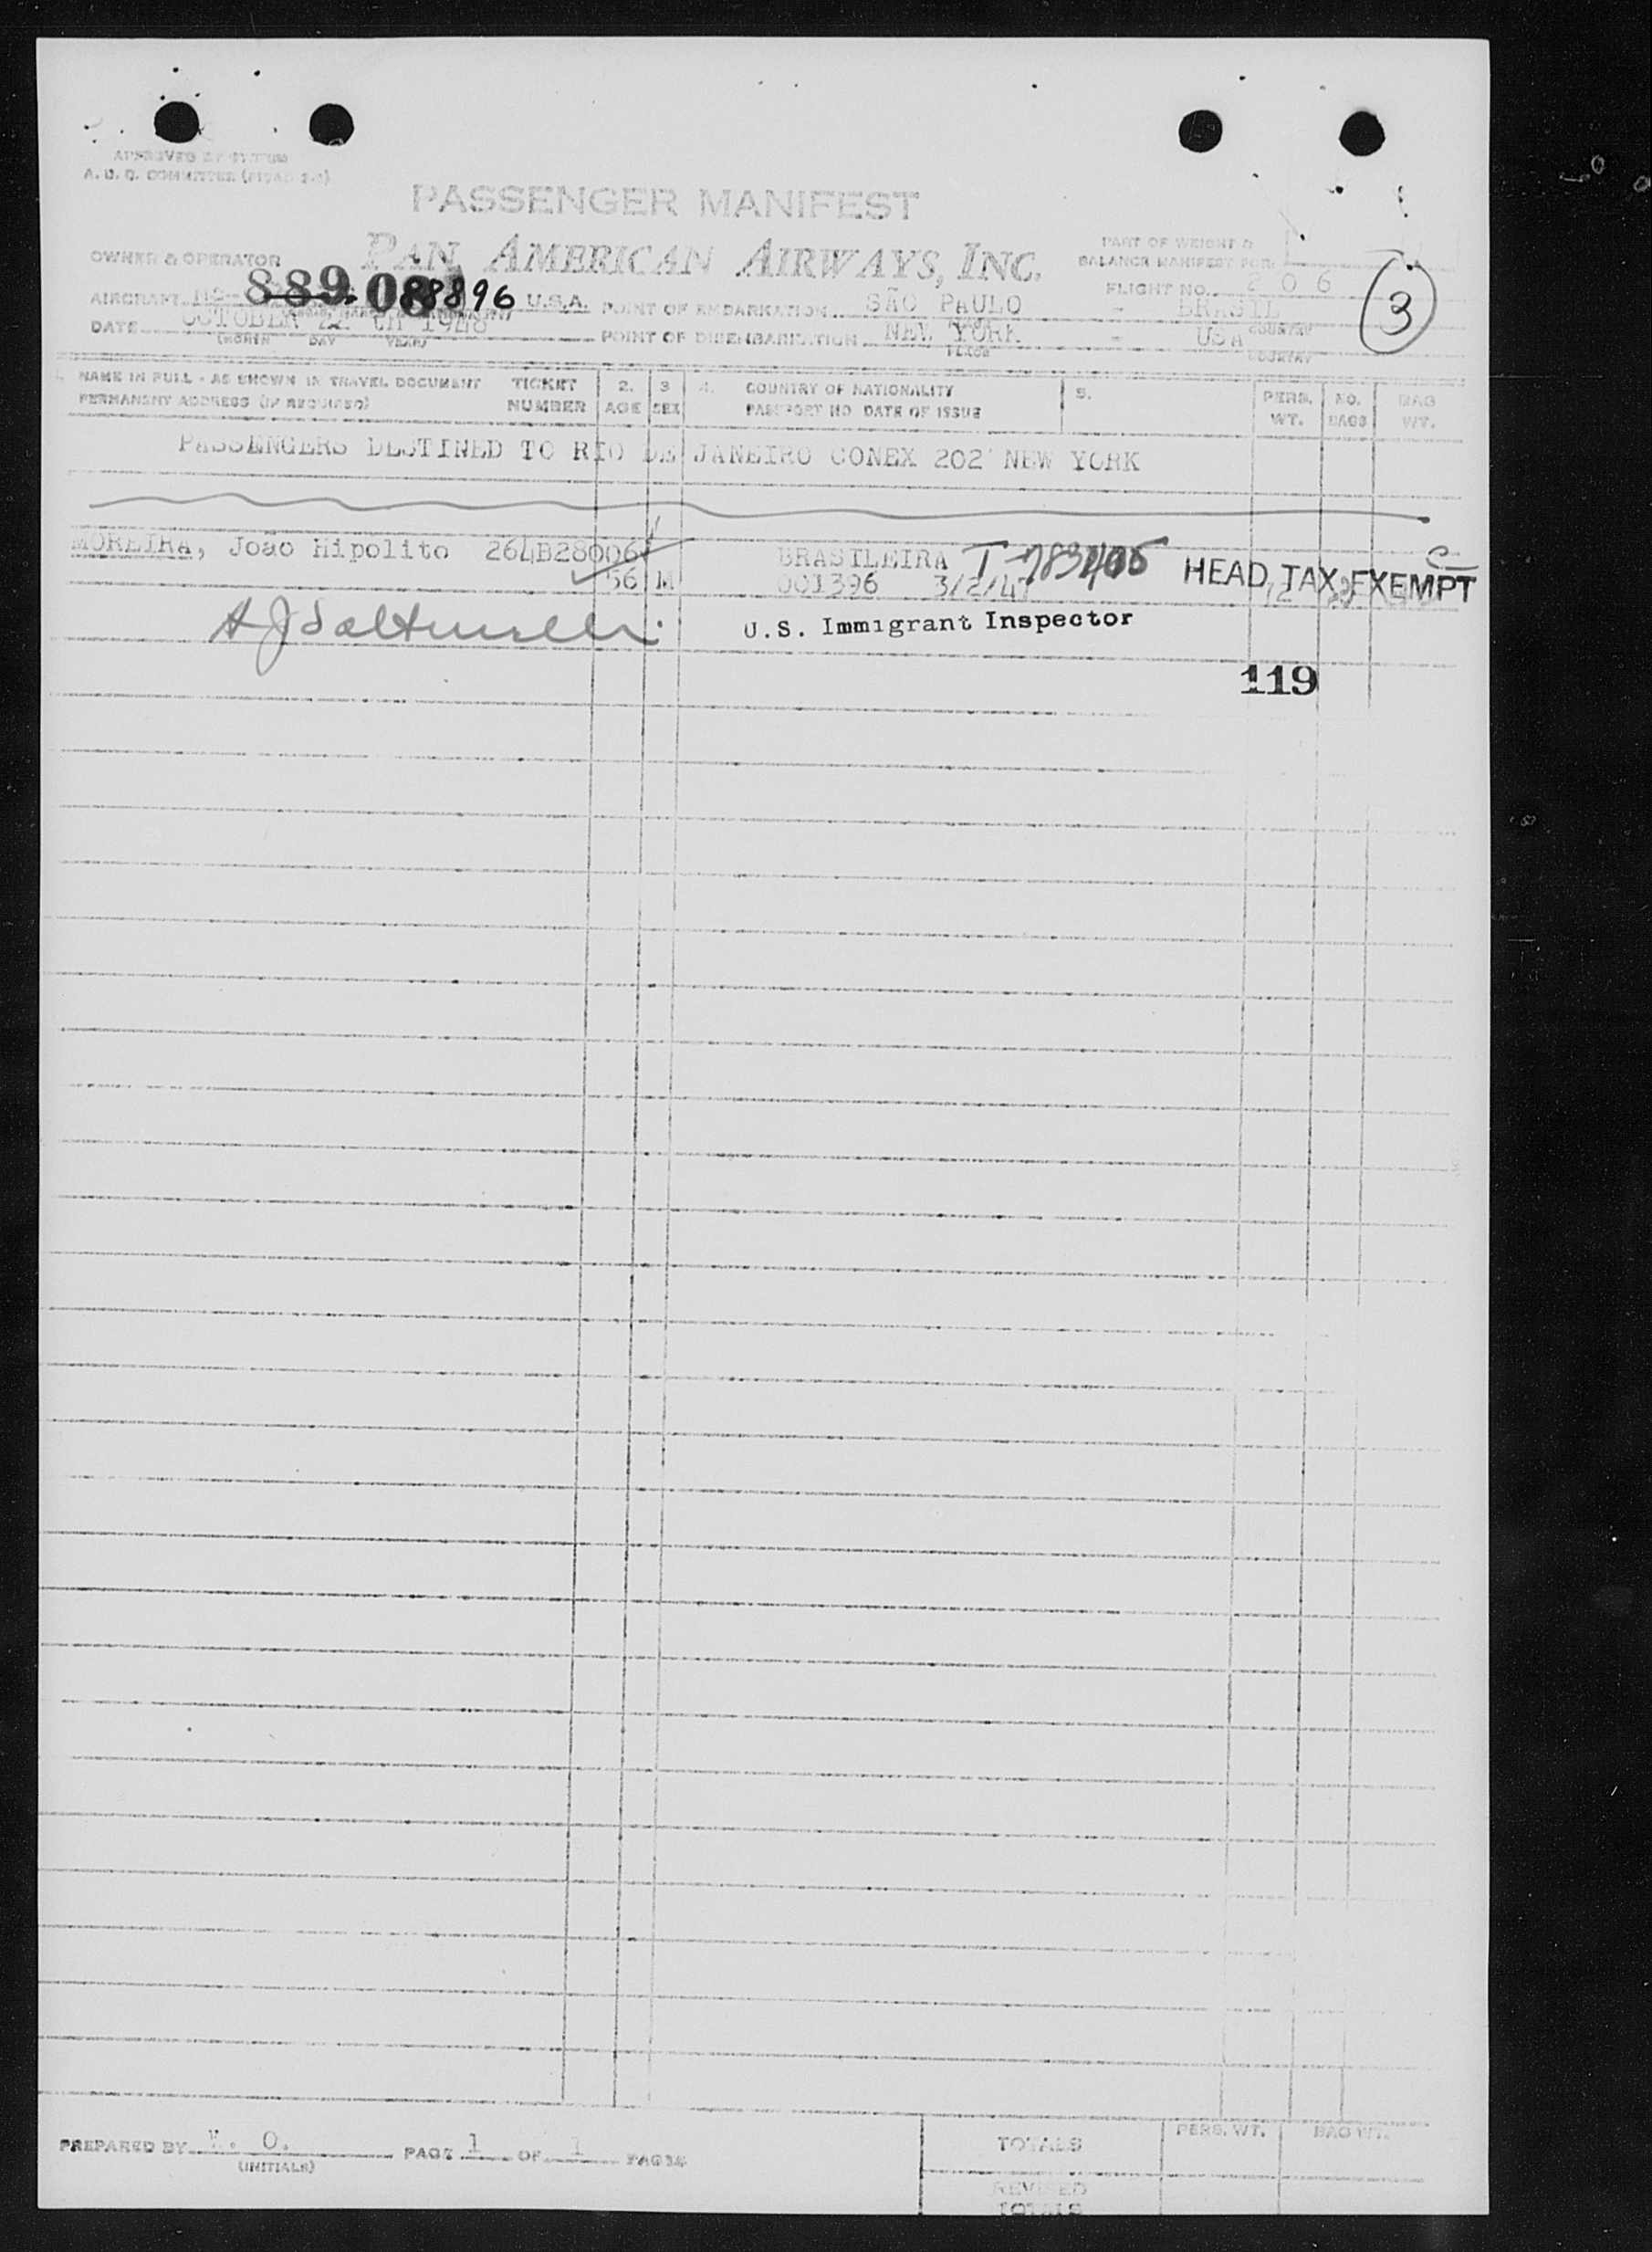 APPROVED BY SYSTEM
A. D. Q. COMMITTEE
PASSENGER MANIFEST
OWNER & OPERATOR PAN AMERICAN AIRWAYS, INC.
PART OF WEIGHT &
BALANCE MANIFEST FOR
AIRCRAFT NC- 889. 08 88896 U.S.A. POINT OF EMBARKATION SÃO PAULO - BRASIL
FLIGHT NO. 206
3
PLACE COUNTRY
DATE OCTOBER th 1948 POINT OF DISEMBARKATION NEW YORK - USA
(MONTH DAY YEAR) PLACE COUNTRY
1. NAME IN FULL - AS SHOWN IN TRAVEL DOCUMENT TICKET 2. 3 4. COUNTRY OF NATIONALITY 5. PERS. NO. BAG
PERMANENT ADDRESS (IF REQUIRED) NUMBER AGE SEX PASSPORT NO DATE OF ISSUE WT. BAGS WT.
PASSENGERS DESTINED TO RIO DE JANEIRO CONEX 202 NEW YORK
MOREIRA, João Hipolito 264B28006 BRASILEIRA T-783405 HEAD TAX EXEMPT C
56 M 001396 3/2/47
U.S. Immigrant Inspector
119
PREPARED BY O. PAGE 1 OF 1 PAGES
(INITIALS)
TOTALS PERS. WT. BAG WT.
REVISED
TOTALS